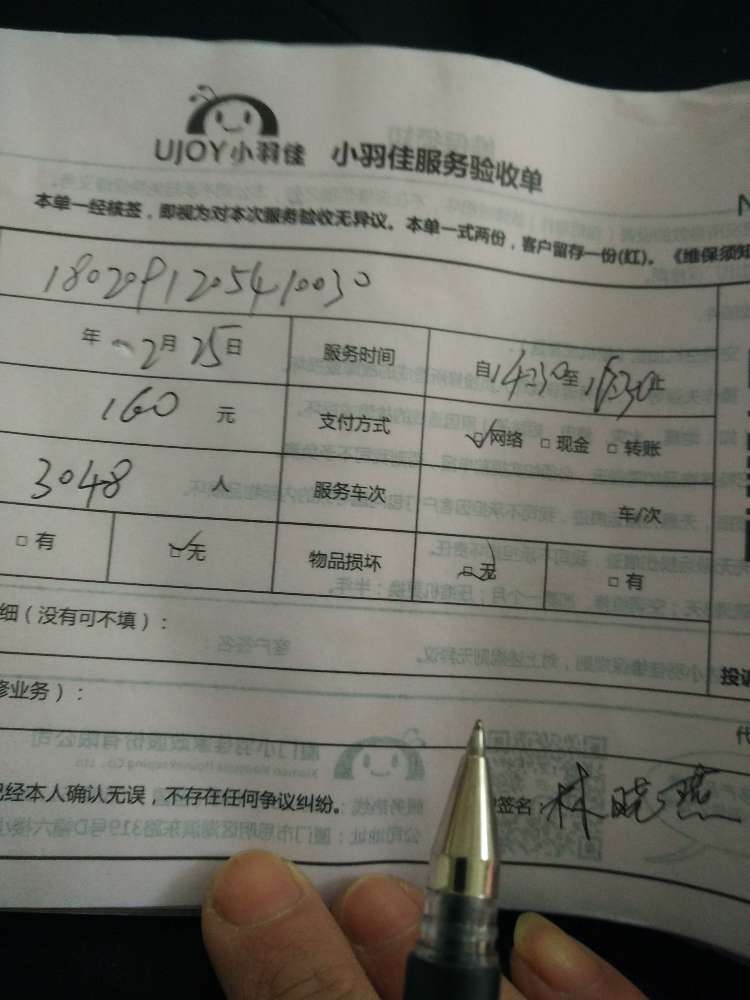 UJOY小羽佳 小羽佳服务验收单
本单一经核签，即视为对本次服务验收无异议。本单一式两份，客户留存一份(红)。《维保须知
180209120541003０
年 2月25日 服务时间 自14:30至16:30止
160 元 支付方式 网络 现金 转账
3048 人 服务车次 车/次
有 无 物品损坏 无 有
细（没有可不填）：
投诉
修业务）：
代
已经本人确认无误，不存在任何争议纠纷。 签名：林晓燕